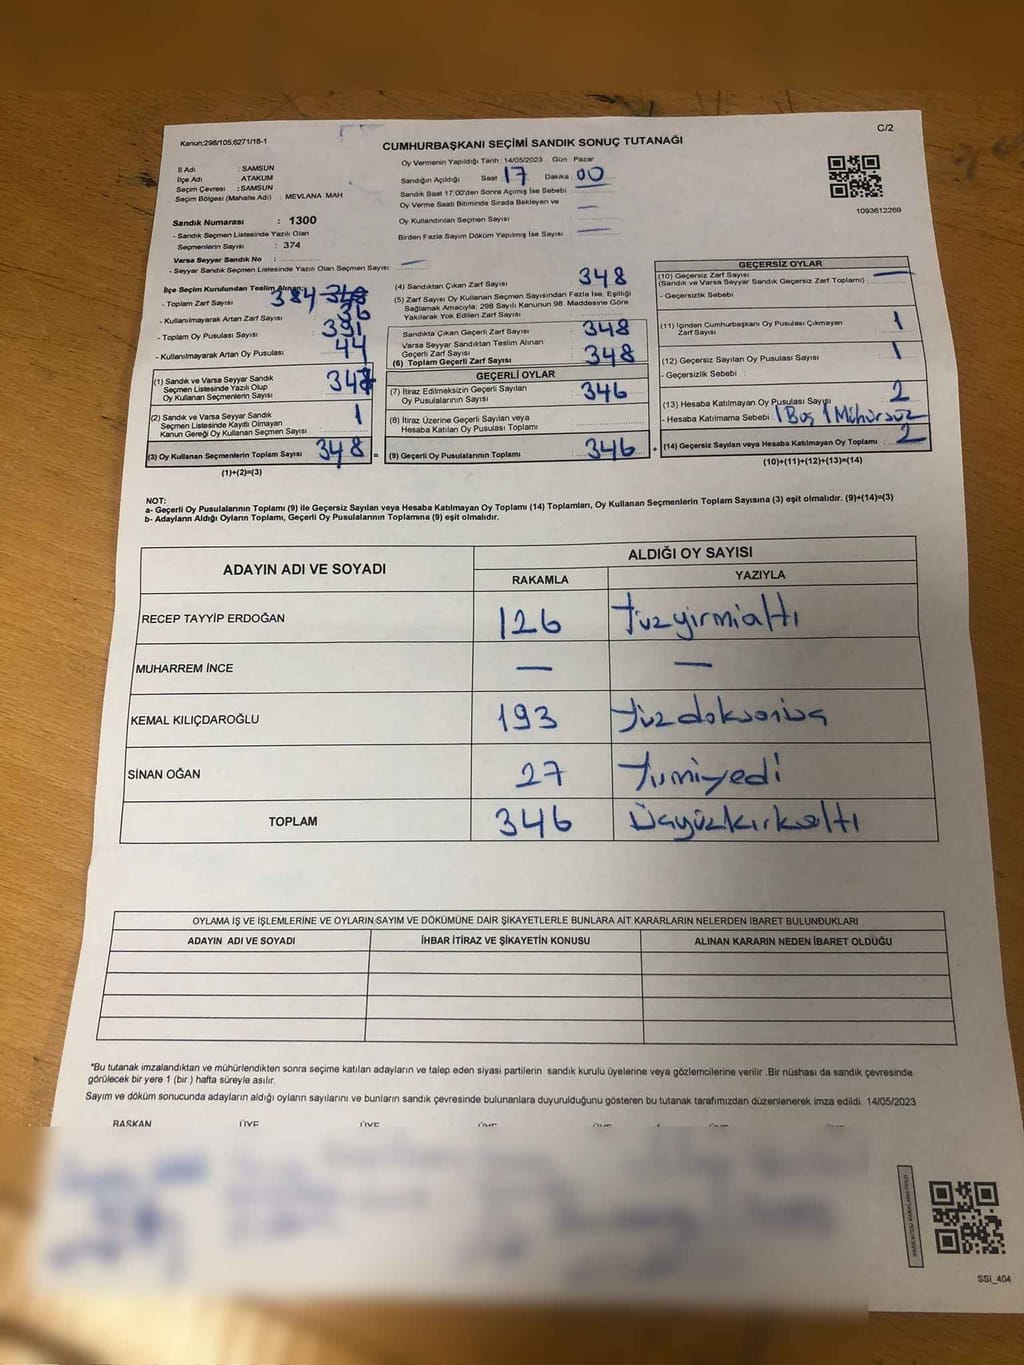 Kanun:298/105,6271/18-1
C/2
CUMHURBAŞKANI SEÇİMİ SANDIK SONUÇ TUTANAĞI
İl Adı : SAMSUN
İlçe Adı : ATAKUM
Seçim Çevresi : SAMSUN
Seçim Bölgesi (Mahalle Adı) : MEVLANA MAH
Sandık Numarası : 1300
- Sandık Seçmen Listesinde Yazılı Olan
Seçmenlerin Sayısı : 374
Varsa Seyyar Sandık No :
- Seyyar Sandık Seçmen Listesinde Yazılı Olan Seçmen Sayısı : —
Oy Vermenin Yapıldığı Tarih : 14/05/2023 Gün : Pazar
Sandığın Açıldığı Saat : 17 Dakika : 00
Sandık Saat 17:00'den Sonra Açılmış İse Sebebi : —
Oy Verme Saati Bitiminde Sırada Bekleyen ve —
Oy Kullandırılan Seçmen Sayısı
Birden Fazla Sayım Döküm Yapılmış İse Sayısı : —
1093612269
İlçe Seçim Kurulundan Teslim Alınan;
- Toplam Zarf Sayısı 384 348
- Kullanılmayarak Artan Zarf Sayısı 36
- Toplam Oy Pusulası Sayısı 391
- Kullanılmayarak Artan Oy Pusulası 44
(1) Sandık ve Varsa Seyyar Sandık
Seçmen Listesinde Yazılı Olup
Oy Kullanan Seçmenlerin Sayısı 347
(2) Sandık ve Varsa Seyyar Sandık
Seçmen Listesinde Kayıtlı Olmayan
Kanun Gereği Oy Kullanan Seçmen Sayısı 1
(3) Oy Kullanan Seçmenlerin Toplam Sayısı 348 =
(1)+(2)=(3)
(4) Sandıktan Çıkan Zarf Sayısı 348
(5) Zarf Sayısı Oy Kullanan Seçmen Sayısından Fazla İse, Eşitliği
Sağlamak Amacıyla; 298 Sayılı Kanunun 98. Maddesine Göre
Yakılarak Yok Edilen Zarf Sayısı
Sandıkta Çıkan Geçerli Zarf Sayısı 348
Varsa Seyyar Sandıktan Teslim Alınan
Geçerli Zarf Sayısı
(6) Toplam Geçerli Zarf Sayısı 348
GEÇERLİ OYLAR
(7) İtiraz Edilmeksizin Geçerli Sayılan
Oy Pusulasının Sayısı 346
(8) İtiraz Üzerine Geçerli Sayılan veya
Hesaba Katılan Oy Pusulası Toplamı
(9) Geçerli Oy Pusulalarının Toplamı 346 +
GEÇERSİZ OYLAR
(10) Geçersiz Zarf Sayısı —
(Sandık ve Varsa Seyyar Sandık Geçersiz Zarf Toplamı)
- Geçersizlik Sebebi
(11) İçinden Cumhurbaşkanı Oy Pusulası Çıkmayan
Zarf Sayısı 1
(12) Geçersiz Sayılan Oy Pusulası Sayısı 1
- Geçersizlik Sebebi :
(13) Hesaba Katılmayan Oy Pusulası Sayısı 2
- Hesaba Katılmama Sebebi : 1 Boş 1 Mühürsüz
(14) Geçersiz Sayılan veya Hesaba Katılmayan Oy Toplamı : 2
(10)+(11)+(12)+(13)=(14)
NOT:
a- Geçerli Oy Pusulalarının Toplamı (9) ile Geçersiz Sayılan veya Hesaba Katılmayan Oy Toplamı (14) Toplamları, Oy Kullanan Seçmenlerin Toplam Sayısına (3) eşit olmalıdır. (9)+(14)=(3)
b- Adayların Aldığı Oyların Toplamı, Geçerli Oy Pusulalarının Toplamına (9) eşit olmalıdır.
ADAYIN ADI VE SOYADI
ALDIĞI OY SAYISI
RAKAMLA YAZIYLA
RECEP TAYYİP ERDOĞAN 126 Yüzyirmialtı
MUHARREM İNCE — —
KEMAL KILIÇDAROĞLU 193 Yüzdoksanüç
SİNAN OĞAN 27 Yirmiyedi
TOPLAM 346 Üçyüzkırkaltı
OYLAMA İŞ VE İŞLEMLERİNE VE OYLARIN SAYIM VE DÖKÜMÜNE DAİR ŞİKAYETLERLE BUNLARA AİT KARARLARIN NELERDEN İBARET BULUNDUKLARI
ADAYIN ADI VE SOYADI İHBAR İTİRAZ VE ŞİKAYETİN KONUSU ALINAN KARARIN NEDEN İBARET OLDUĞU
*Bu tutanak imzalandıktan ve mühürlendikten sonra seçime katılan adayların ve talep eden siyasi partilerin sandık kurulu üyelerine veya gözlemcilerine verilir .Bir nüshası da sandık çevresinde
görülecek bir yere 1 (bir ) hafta süreyle asılır.
Sayım ve döküm sonucunda adayların aldığı oyların sayılarını ve bunların sandık çevresinde bulunanlara duyurulduğunu gösteren bu tutanak tarafımızdan düzenlenerek imza edildi. 14/05/2023
BAŞKAN ÜYE ÜYE ÜYE ÜYE ÜYE ÜYE
SSI_404